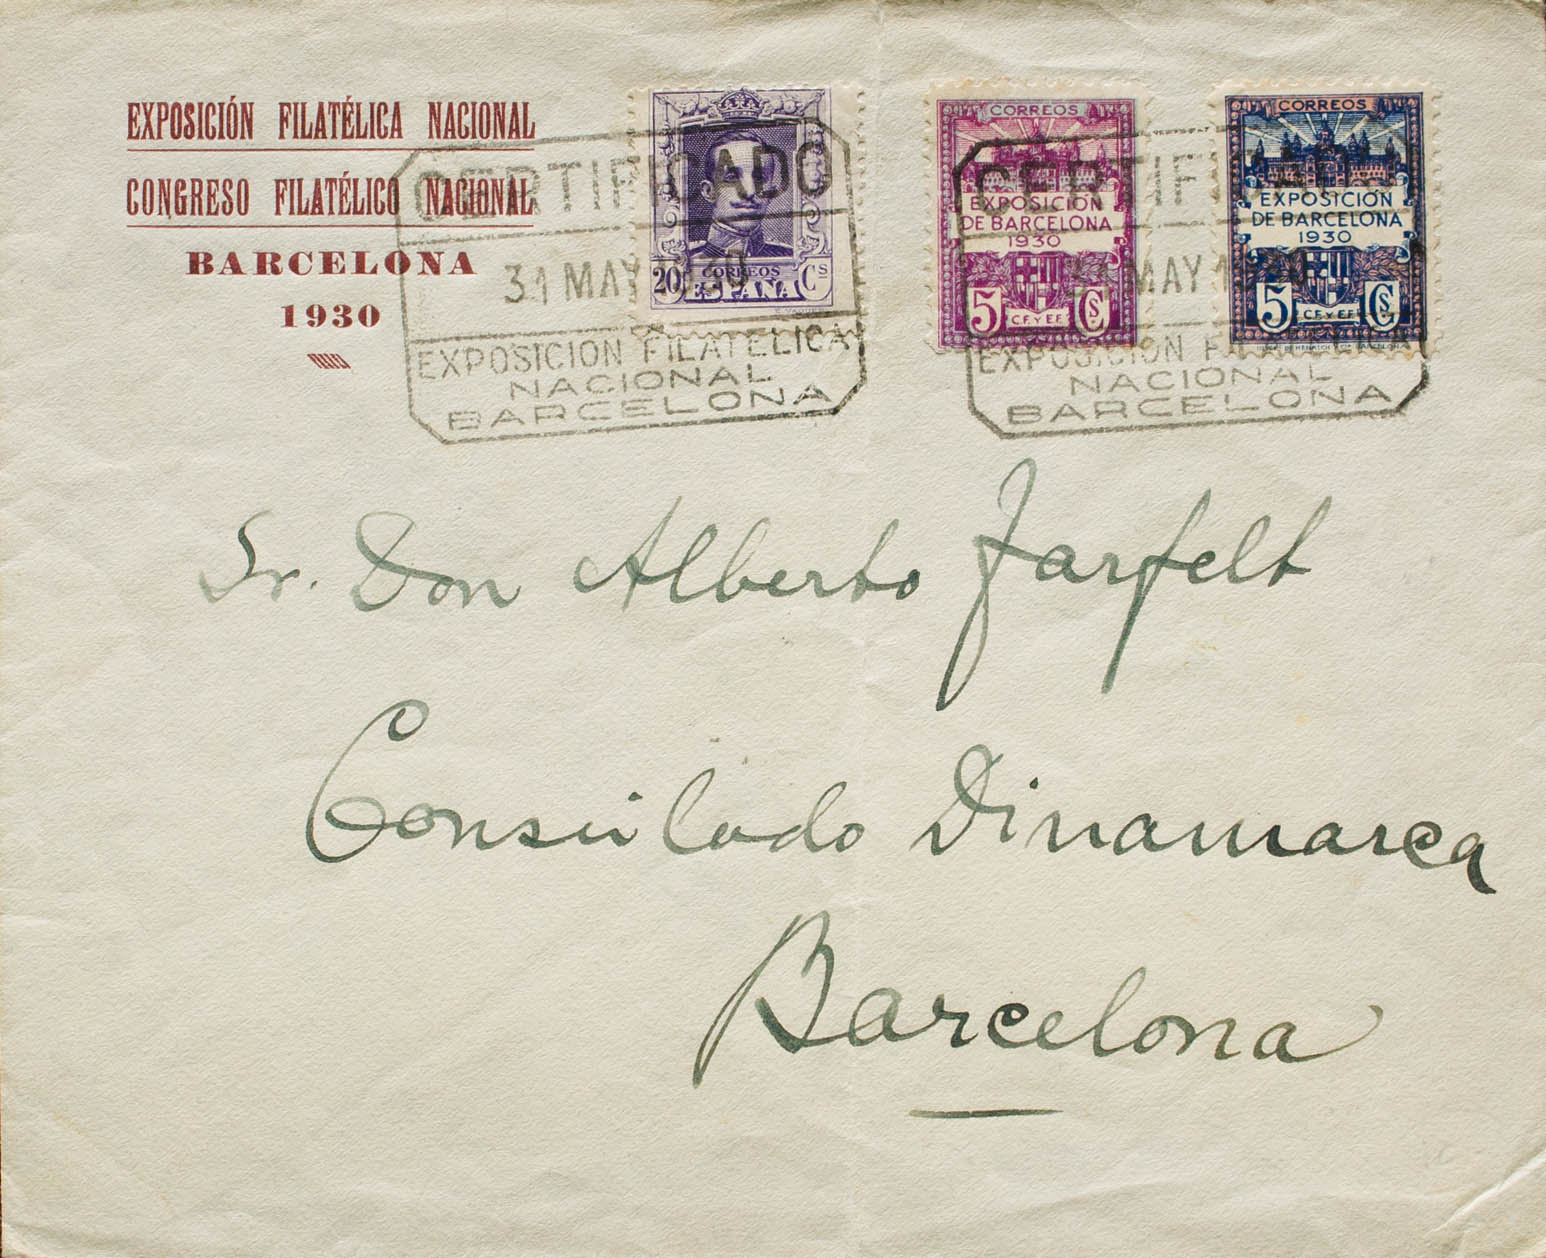 EXPOSICIÓN FILATÉLICA NACIONAL
CONGRESO FILATÉLICO NACIONAL
BARCELONA
1930
20 CORREOS Cs
ESPAÑA
CORREOS
EXPOSICIÓN
DE BARCELONA
1930
5 C.F. Y E.F. Cs
CORREOS
EXPOSICIÓN
DE BARCELONA
1930
5 C.F. Y E.F. Cs
CERTIFICADO
31 MAY 1930
EXPOSICION FILATELICA
NACIONAL
BARCELONA
CERTIFICADO
31 MAY 1930
EXPOSICION FILATELICA
NACIONAL
BARCELONA
Sr. Don Alberto Jarfelt
Consulado Dinamarca
Barcelona